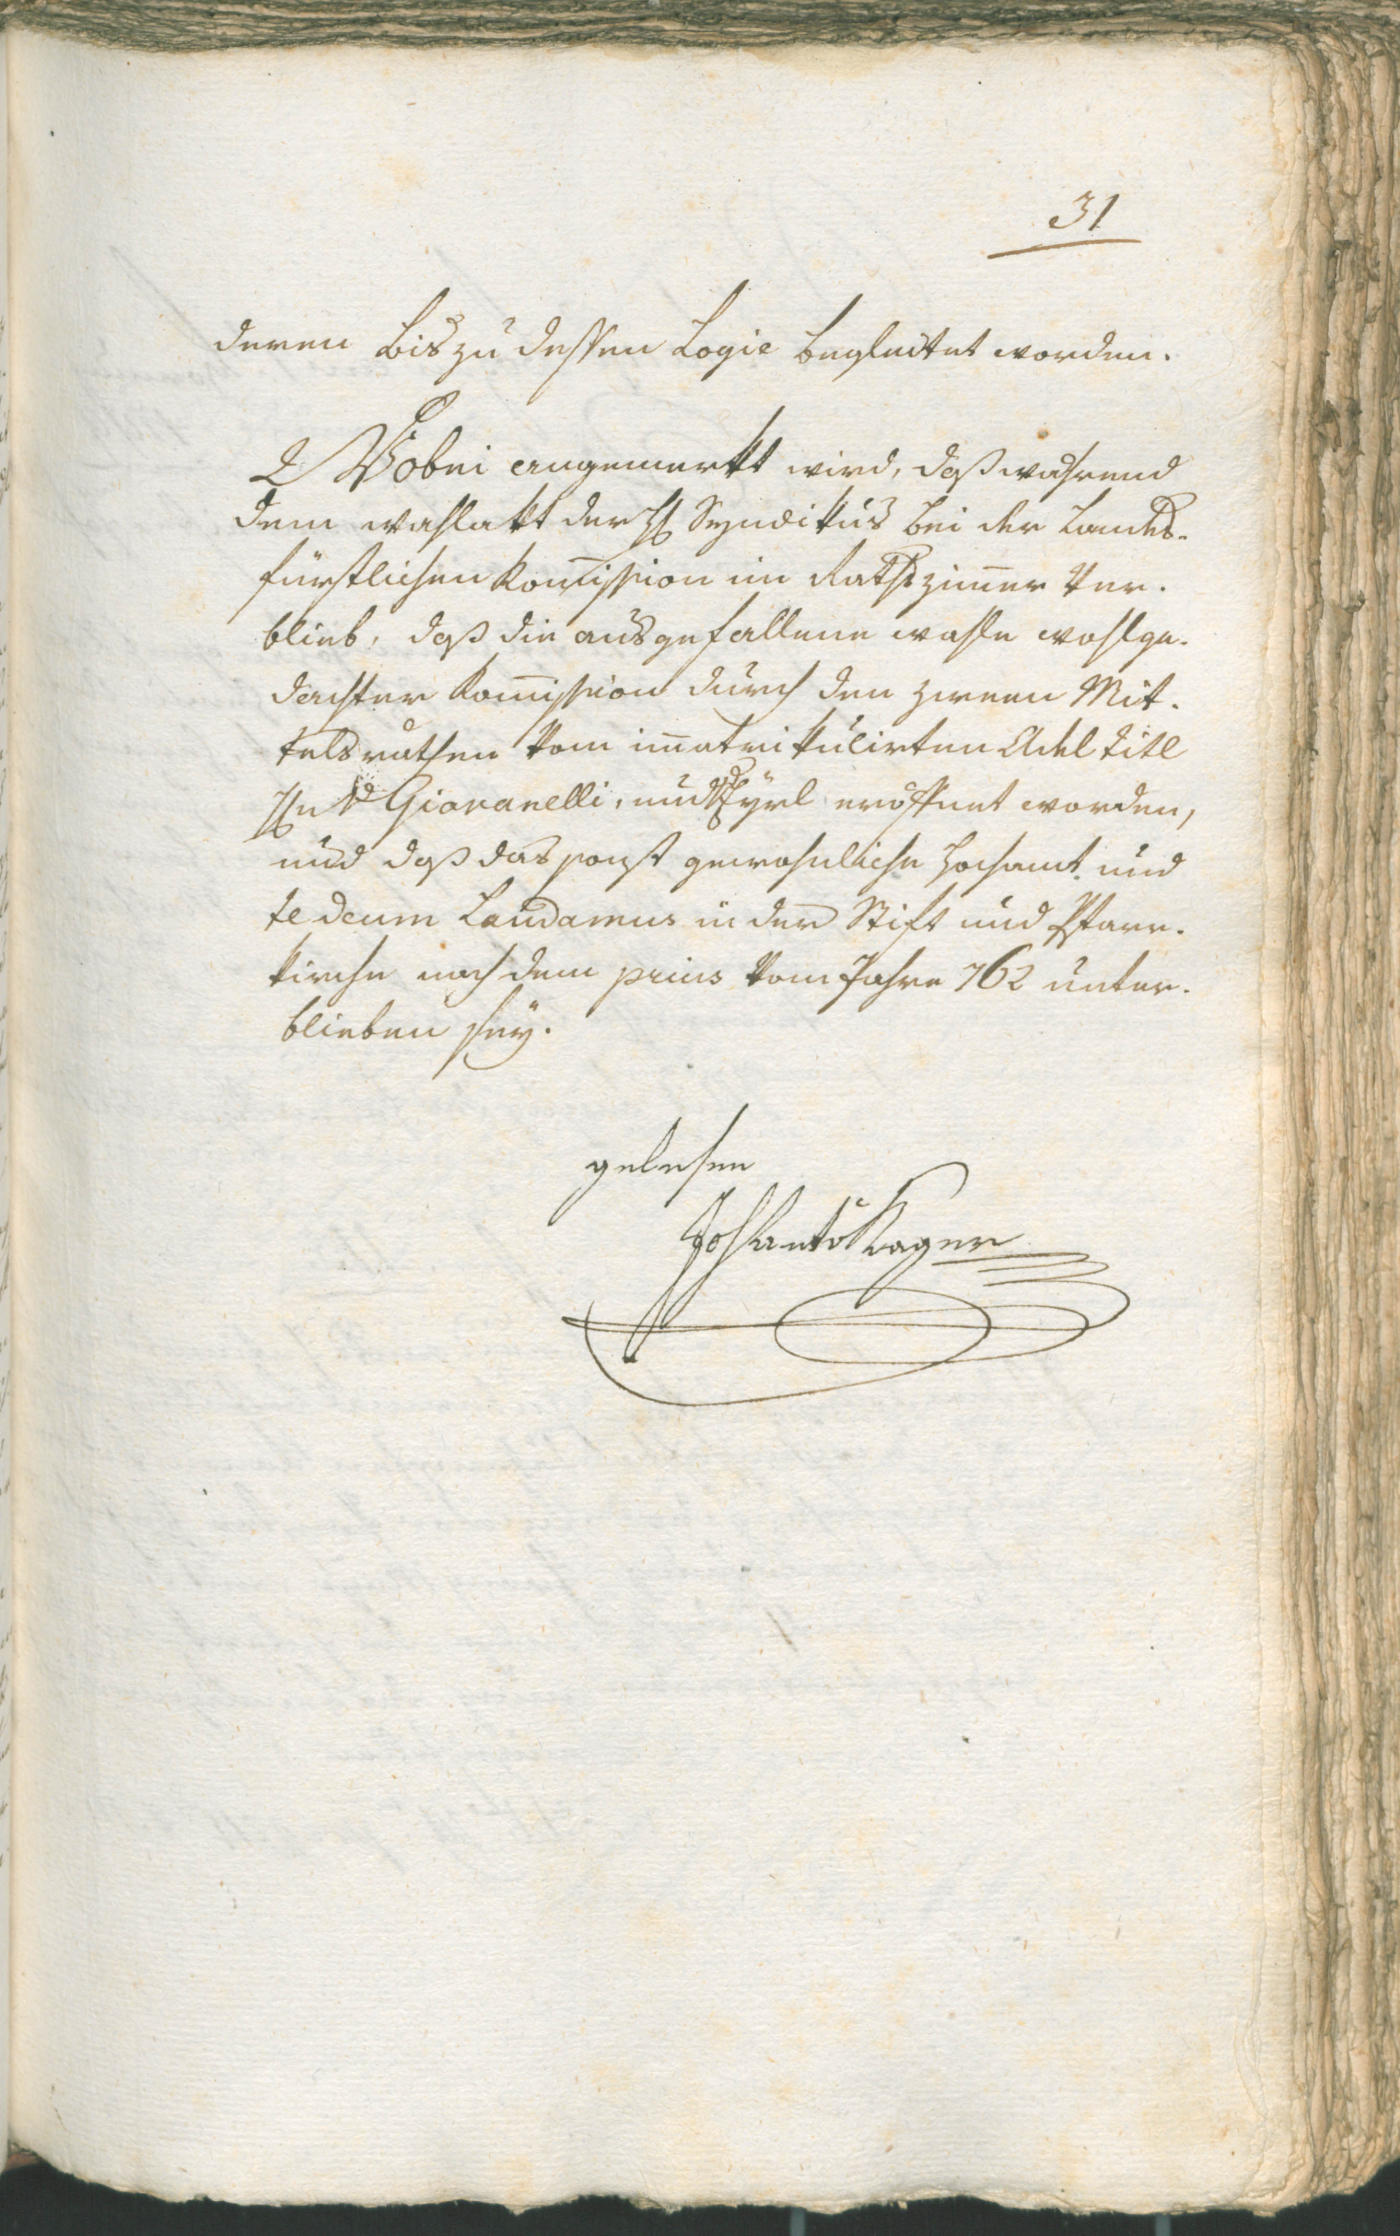 31
deren bis zu dessen Logie begleitet worden.
Wobei angemerkt wird, daß während
dem wahlakt der H Syndikus bei der Landes-
fürstlichen Kom̅ission im Rathszim̅er ver-
blieb, daß die ausgefallene wahle wohlge-
dachter Kom̅ission durch den zween Mit-
telsräthen vom im̅atrikulirten Adel titl
Hn v Giovanelli, und eröffnet worden,
und daß das sonst gewohnliche Hochamt und
te deum Laudamus in der Stift und Pfarr-
kirche nach dem prius vom Jahre 762 unter-
blieben sey.
gelesen
Joh Anto Kager